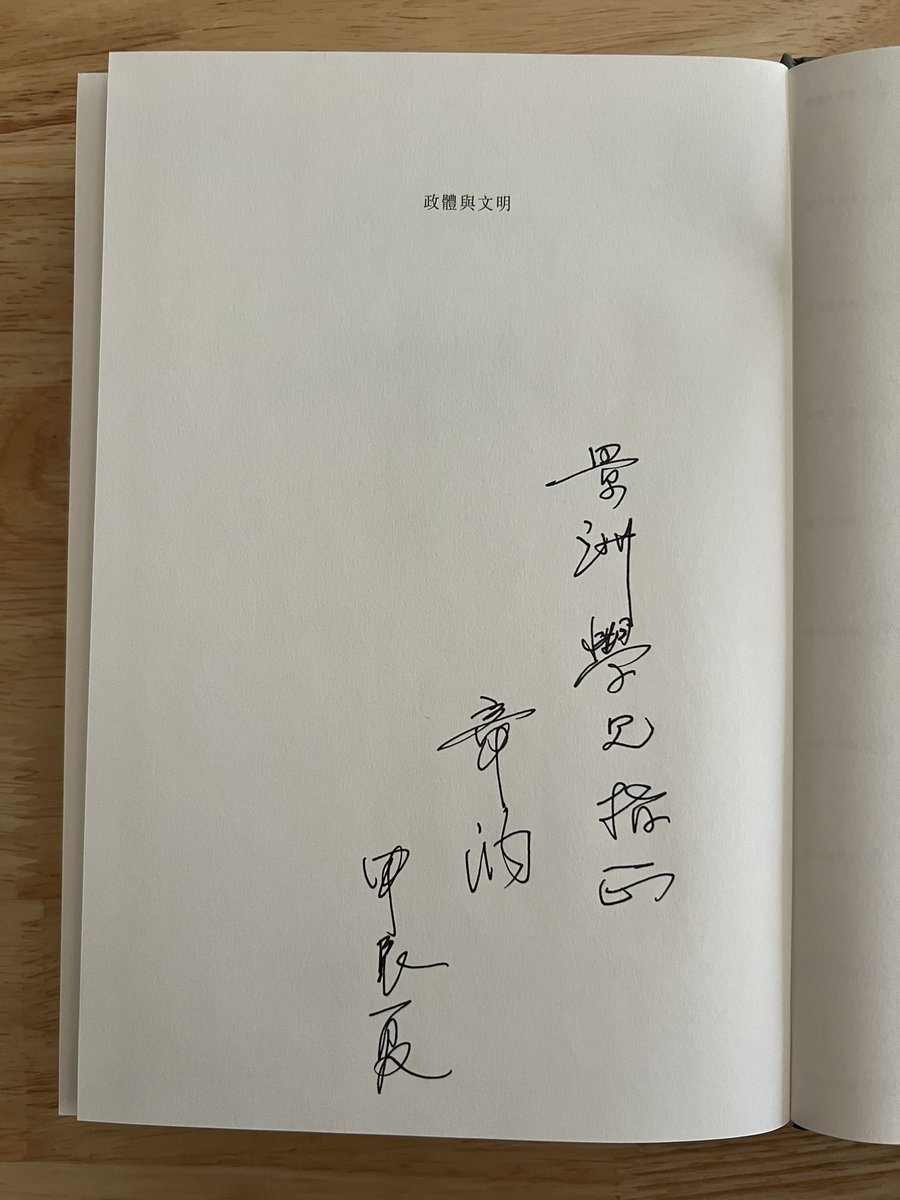 政體與文明
景洲學兄指正
章的
甲辰夏